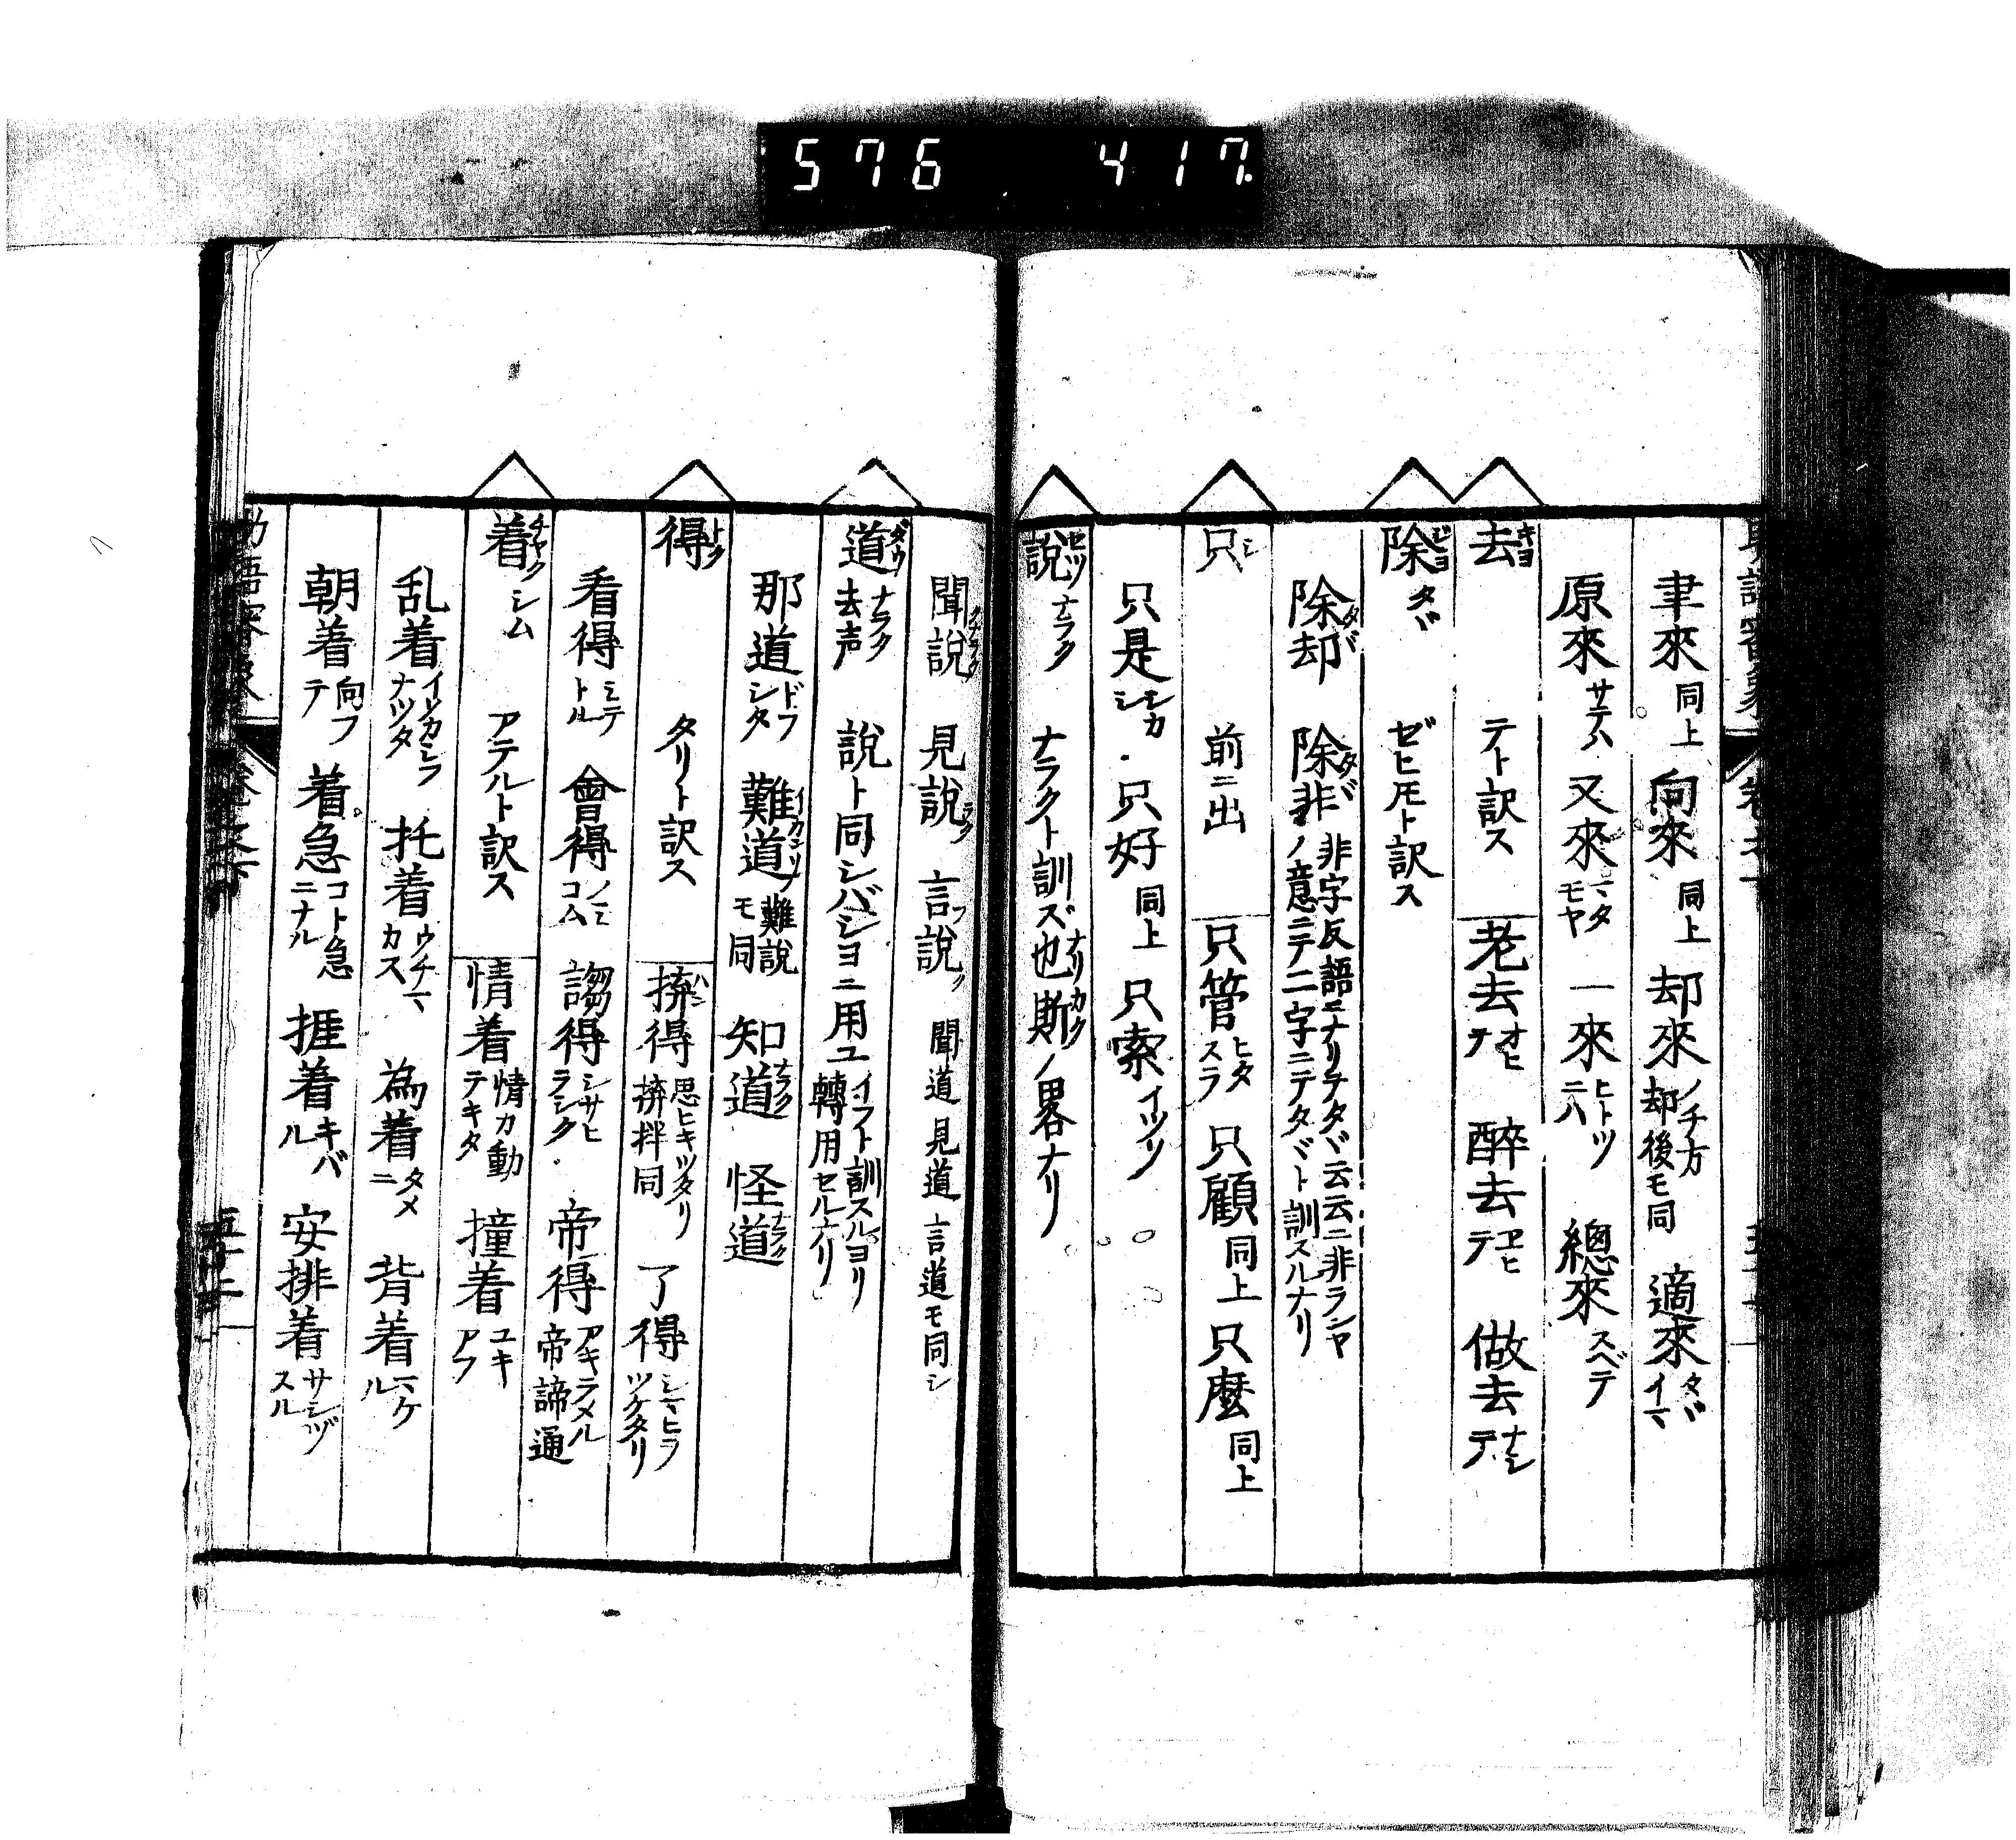 576 417
聿來 同上 向來 同上 却來 ノチ方 却後モ同 適來 タヾイマ
原來 サテハ 又來 マタモヤ 一來 ヒトツニハ 總來 スベテ
去 キヨ テト訳ス 老去 オヒテ 醉去 ヱヒテ 做去 ナシテ
除 ヂヨ タヾ ゼヒトモト訳ス
除却 タヾ 除非 タヾ 非字反語ニナリテタヾ云云ニ非ラシヤノ意ニテ二字ニテタヾト訓スルナリ
只 シ 前ニ出 只管 ヒタスラ 只顧 同上 只麼 同上
只是 シカシ 只好 同上 只索 イツソ
説 セツ ナラク ナラクト訓ズ也斯ノ畧ナリ ナリカク
聞説 見説 ラク 言説 フ 聞道 見道 言道モ同シ
道 ダウ ナラク 去声 説ト同シバシヨニ用ユ イフト訓スルヨリ轉用セルナリ
那道 ドフシタ 難道 難説モ同 知道 ナラク 怪道 ナラク
得 トク タリト訳ス 𢬵得 思ヒキツタリ 𢬵拌同 了得 シマヒヲツケタリ
看得 ミテトル 會得 ノミコム 謅得 帝得 アキラメル 帝諦通
着 チヤク シム アテルト訳ス 情着 情カ動テキタ 撞着 ユキアフ
乱着 ナツタ 托着 ウチマカス 為着 タメニ 背着 マケル
朝着 向フテ 着急 コト急ニナル 捱着 キバル 安排着 サシヅスル